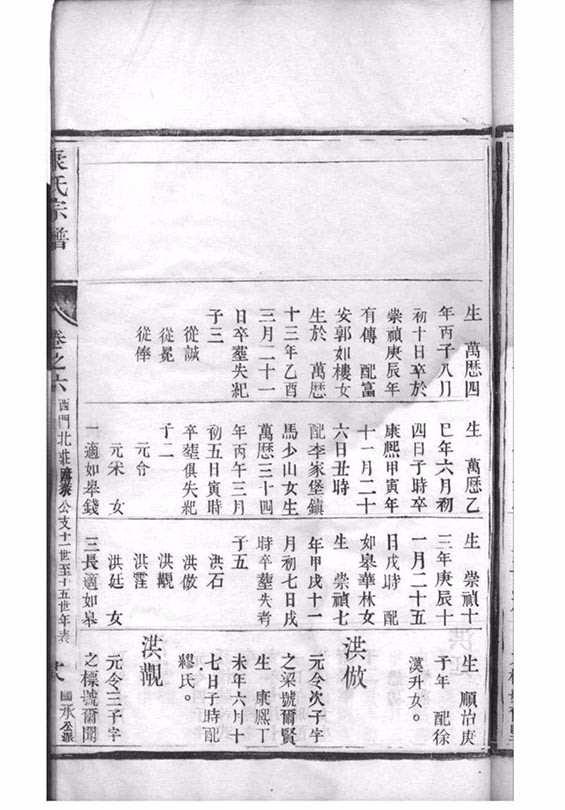 生 萬曆四
年丙子八月
初十日卒於
崇禎庚辰年
有傳 配富
安郭如樓女
生於 萬曆
十三年乙酉
三月二十一
日卒塟失紀
子三
從誠
從冕
從俸
生 萬曆乙
巳年六月初
四日子時卒
康熙甲寅年
十一月二十
六日丑時
配李家堡鎮
馬少山女生
萬曆三十四
年丙午三月
初五日寅時
卒塟俱失紀
子二
元令
元采 女
一適如皋錢
生 崇禎十
三年庚辰十
一月二十五
日戌時 配
如皋華林女
生 崇禎七
年甲戌十一
月初七日戌
時卒塟失考
子五
洪石
洪倣
洪觀
洪霔
洪廷 女
三長適如皋
生 順治庚
子年 配徐
漢升女。
洪倣
元令次子字
之梁號爾賢
生 康熙丁
未年六月十
七日子時配
繆氏。
洪觀
元令三子字
之標號爾聞
氏宗譜
卷之六
西門北莊 公支十一世至十五世年表
國承公派